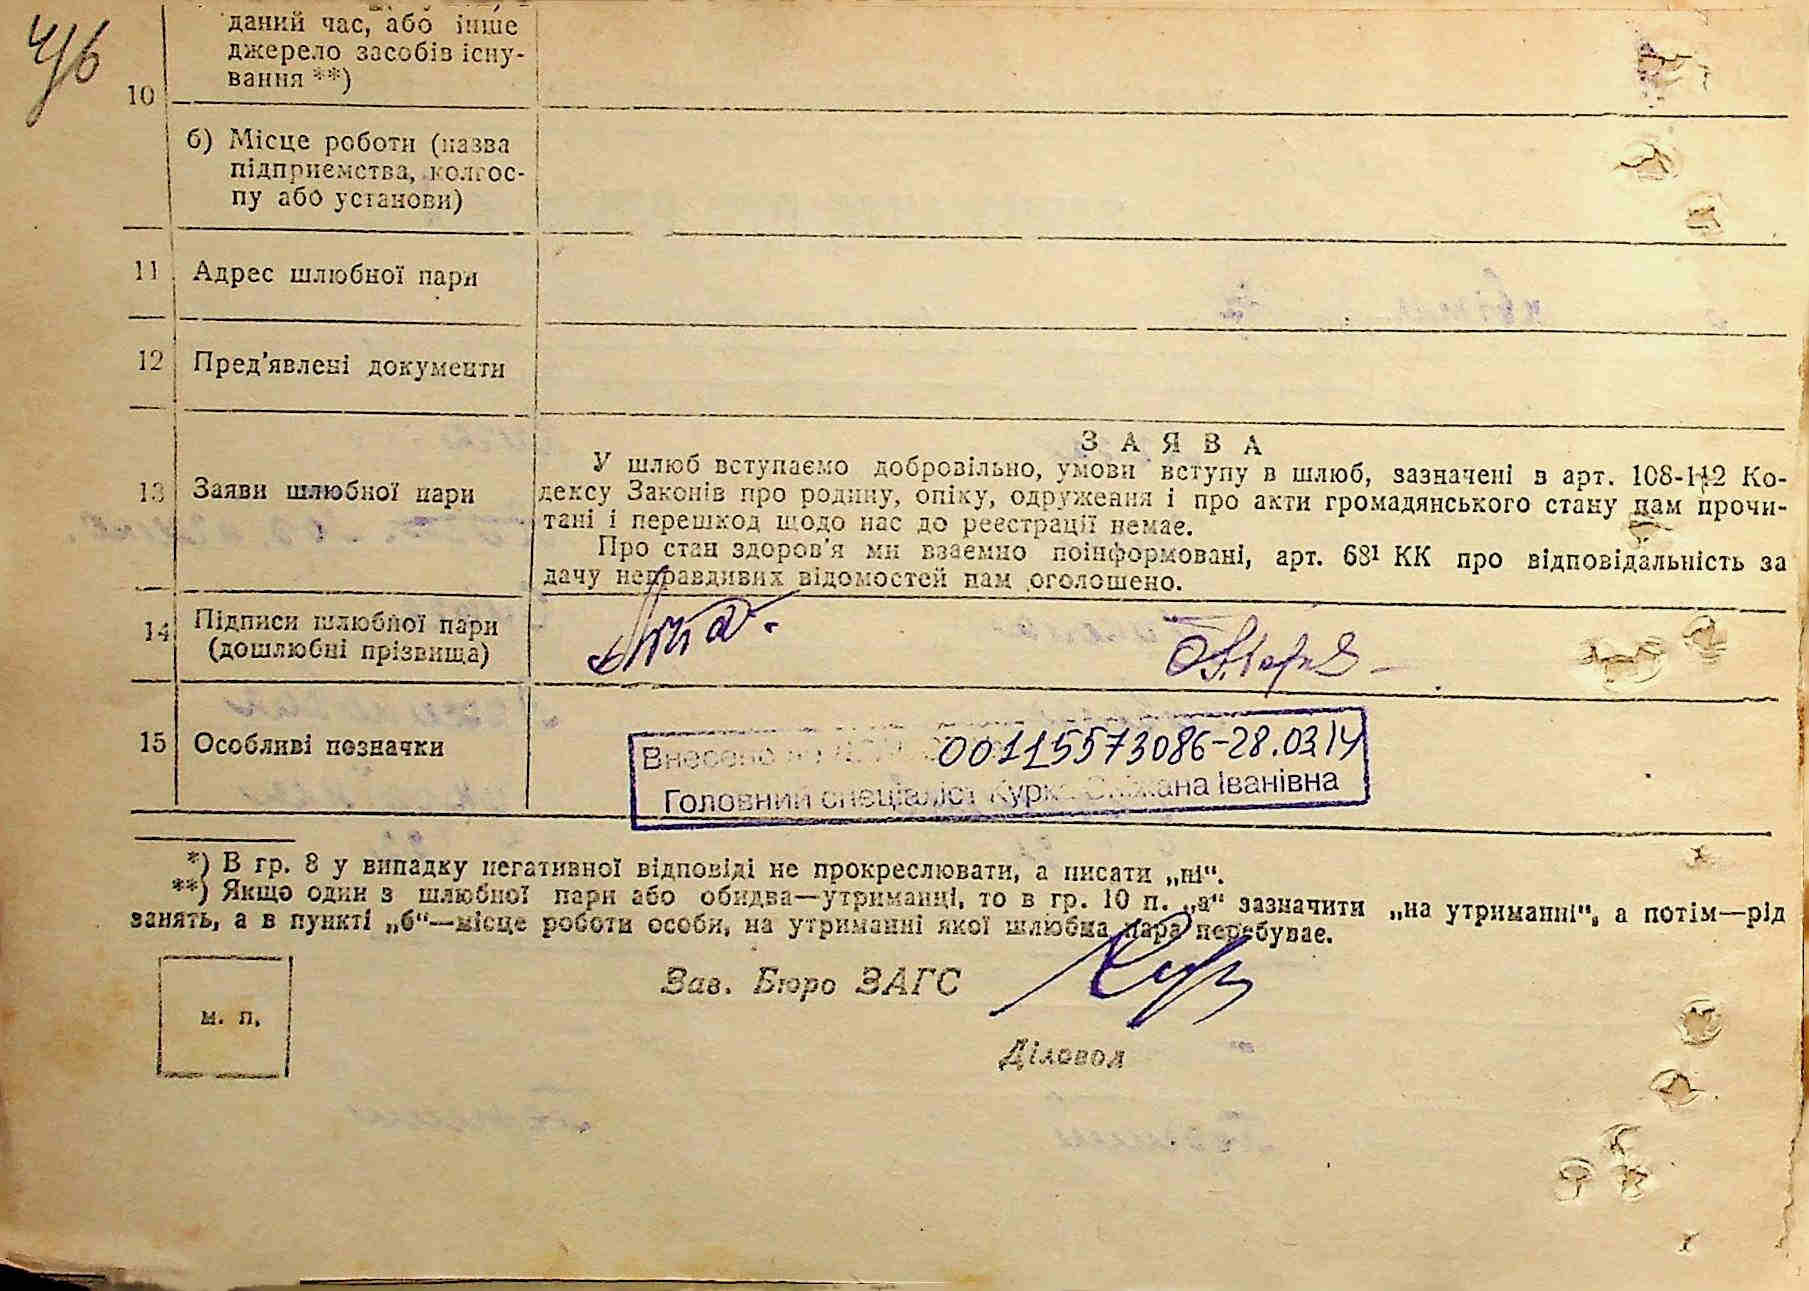 даний час, або інше
джерело засобів існу-
вання **)
10
б) Місце роботи (назва
підприємства, колгос-
пу або установи)
11 Адрес шлюбної пари
12 Пред'явлені документи
ЗАЯВА
13 Заяви шлюбної пари
У шлюб вступаємо добровільно, умови вступу в шлюб, зазначені в арт. 108-112 Ко-
дексу Законів про родину, опіку, одруження і про акти громадянського стану нам прочи-
тані і перешкод щодо нас до реєстрації немає.
Про стан здоров'я ми взаємно поінформовані, арт. 68¹ КК про відповідальність за
дачу неправдивих відомостей нам оголошено.
14 Підписи шлюбної пари
(дошлюбні прізвища)
15 Особливі позначки
Внесено 00115573086-28.03.14
Головний спеціаліст Курка Сніжана Іванівна
*) В гр. 8 у випадку негативної відповіді не прокреслювати, а писати „ні“.
**) Якщо один з шлюбної пари або обидва—утриманці, то в гр. 10 п. „а“ зазначити „на утриманні“, а потім—рід
занять, а в пункті „б“—місце роботи особи, на утриманні якої шлюбна пара перебуває.
Зав. Бюро ЗАГС
м. п.
Діловод